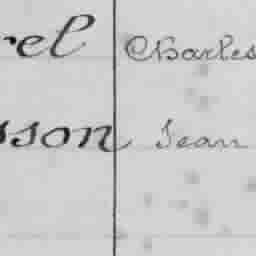 rel Charles
sson Jean